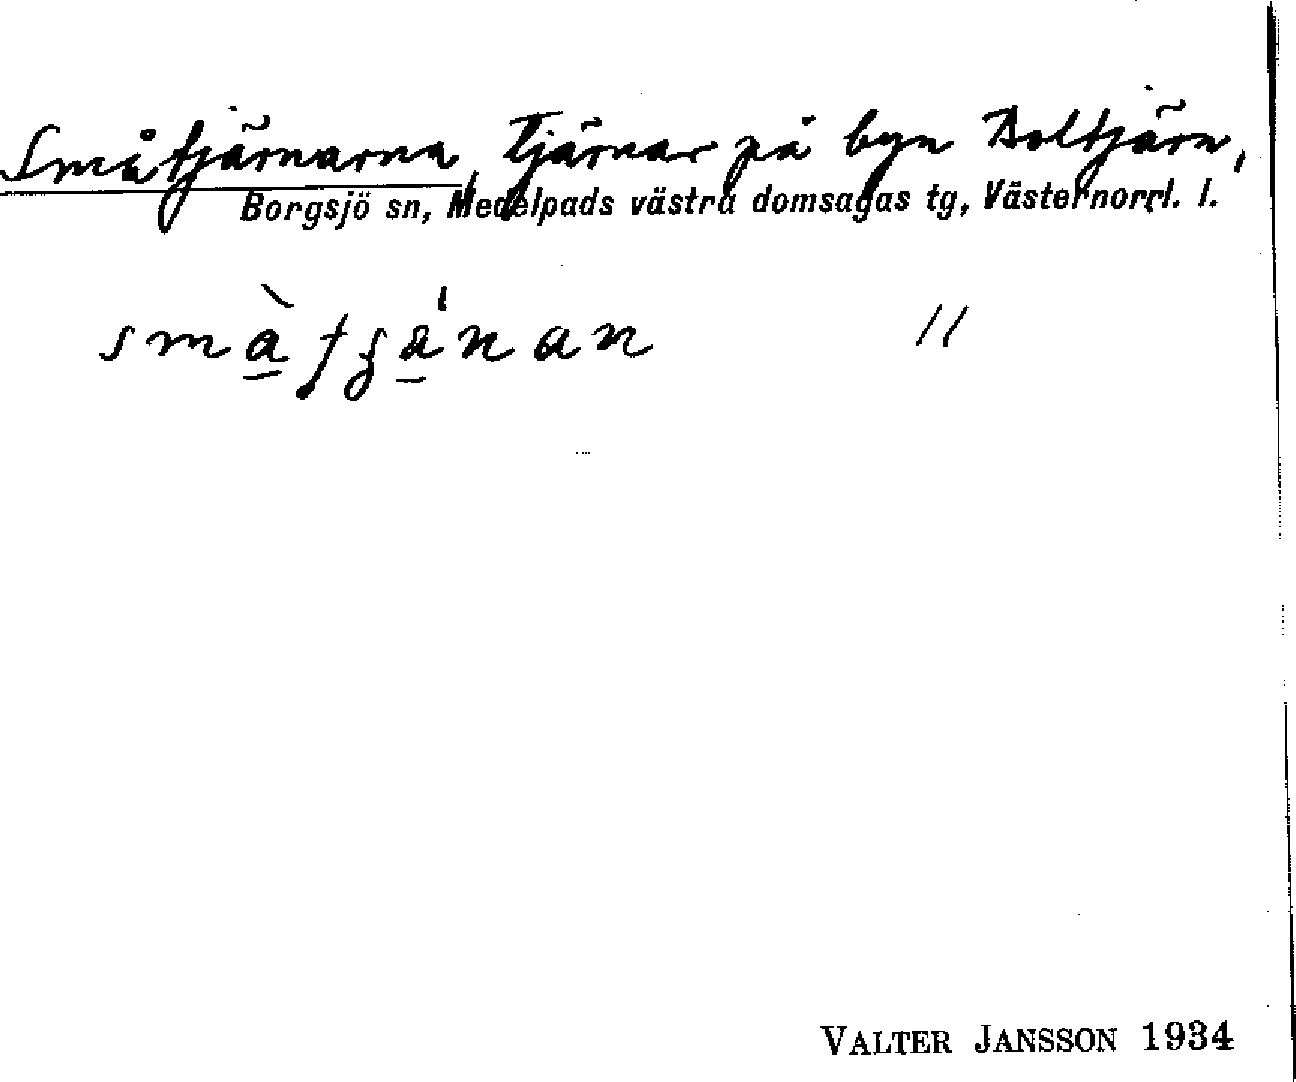 Småtjärnarna, Tjärnar på byn Boltjärn,
Borgsjö sn, Medelpads västra domsagas tg, Västernorrl. l.
//
VALTER JANSSON 1934